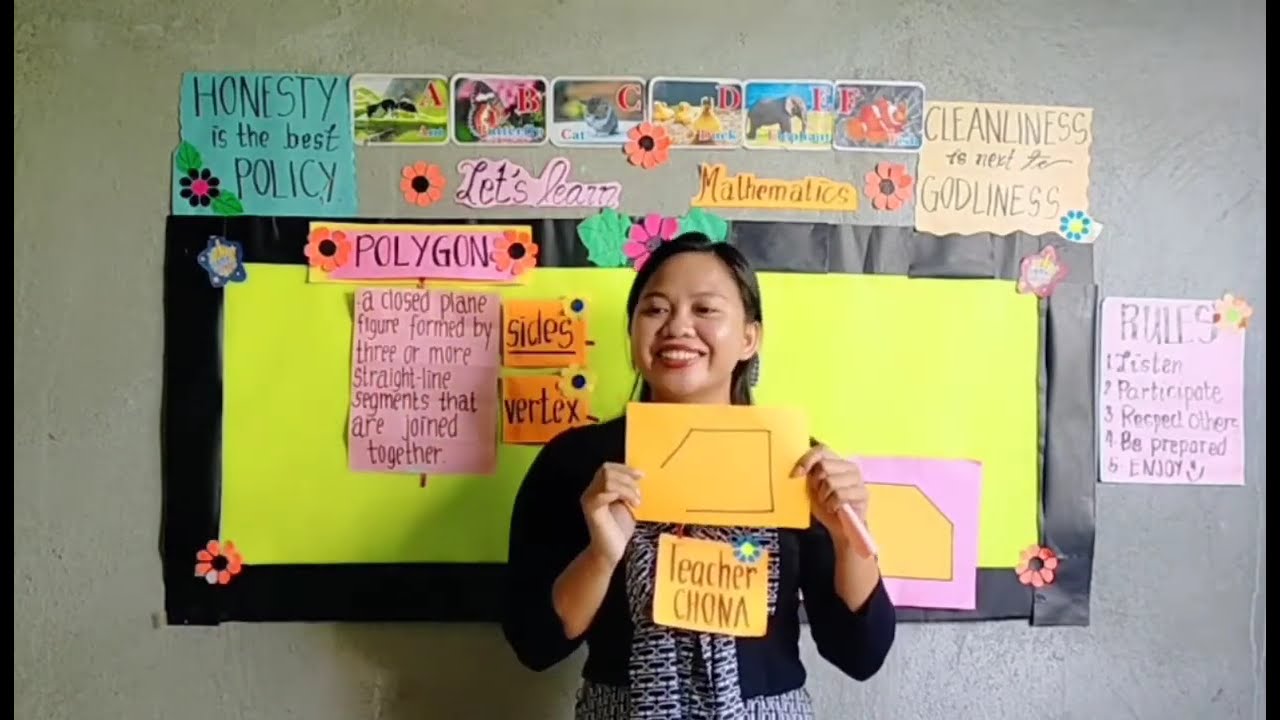 HONESTY
is the best
POLICY
A
Ant
B
Butterfly
C
Cat
D
Duck
E
Elephant
F
Fish
CLEANLINESS
is next to
GODLINESS
Let's learn
Mathematics
POLYGON
a closed plane
figure formed by
three or more
straight-line
segments that
are joined
together.
sides
vertex
RULES
1. Listen
2. Participate
3. Respect others
4. Be prepared
5. ENJOY
Teacher
CHONA